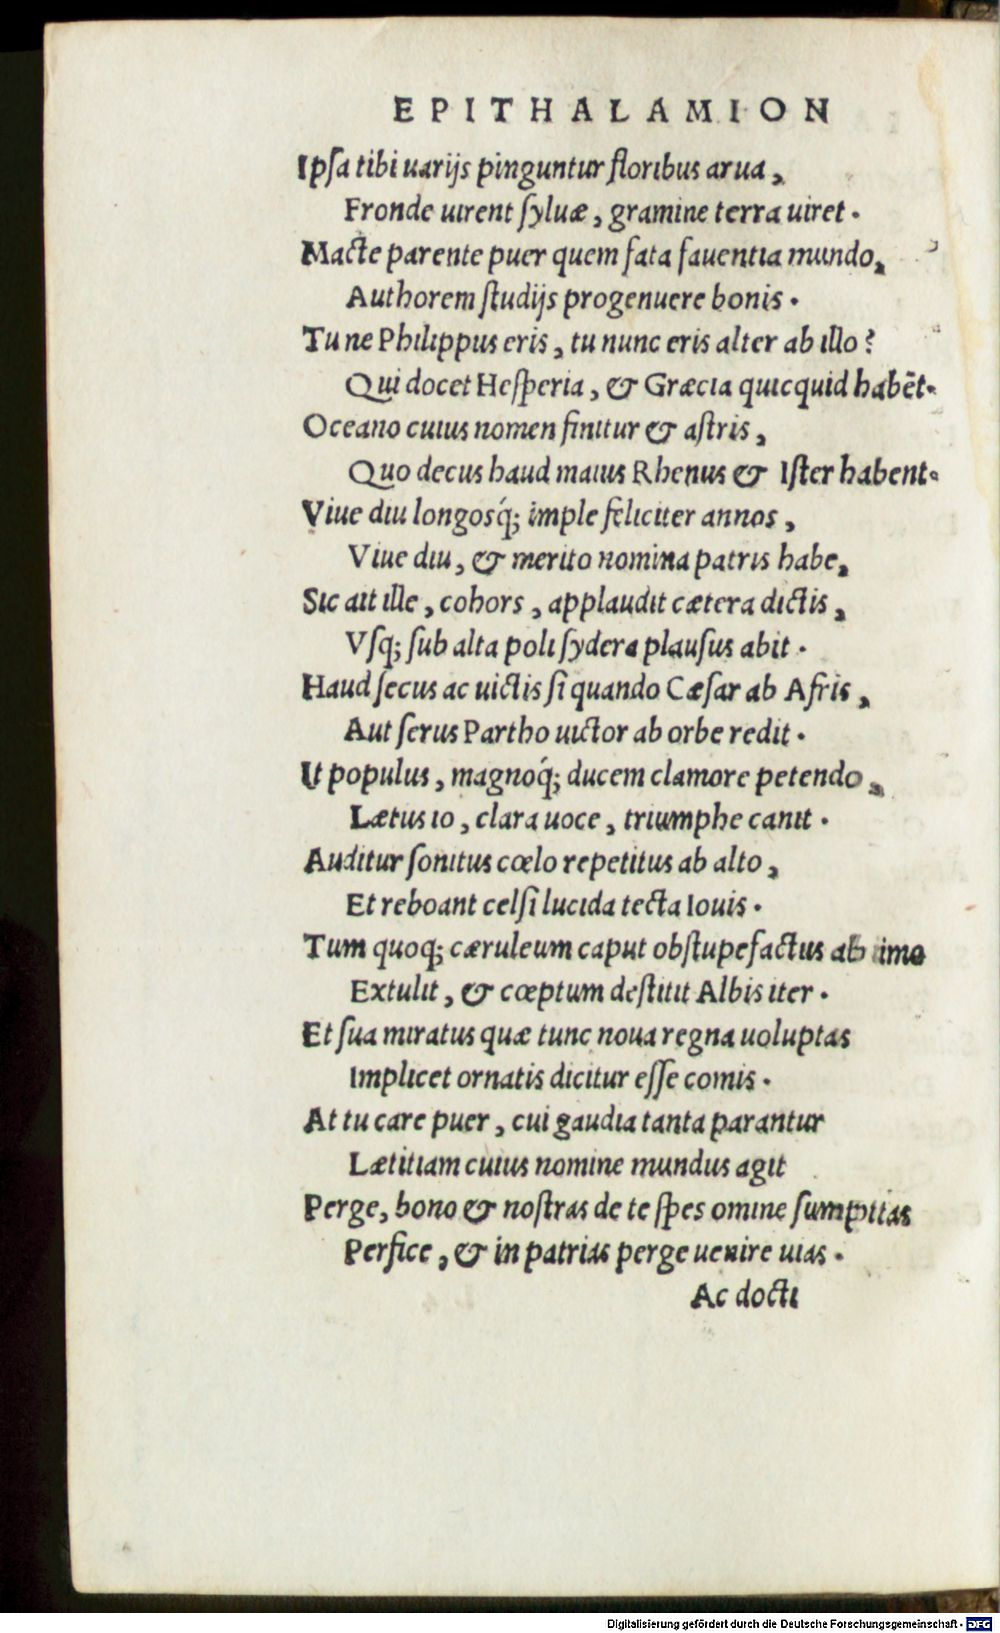 EPITHALAMION
Ipſa tibi uarijs pinguntur floribus arua,
Fronde uirent ſyluæ, gramine terra uiret.
Macte parente puer quem fata fauentia mundo,
Authorem ſtudijs progenuere bonis.
Tu ne Philippus eris, tu nunc eris alter ab illo?
Qui docet Heſperia, & Græcia quicquid habēt.
Oceano cuius nomen finitur & aſtris,
Quo decus haud maius Rhenus & Iſter habent.
Viue diu longosq́; imple feliciter annos,
Viue diu, & merito nomina patris habe,
Sic ait ille, cohors, applaudit cætera dictis,
Vſq; ſub alta poli ſydera plauſus abit.
Haud ſecus ac uictis ſi quando Cæſar ab Afris,
Aut ſerus Partho uictor ab orbe redit.
It populus, magnoq́; ducem clamore petendo,
Lætus io, clara uoce, triumphe canit.
Auditur ſonitus cœlo repetitus ab alto,
Et reboant celſi lucida tecta Iouis.
Tum quoq; cæruleum caput obſtupefactus ab imo
Extulit, & cœptum deſtitit Albis iter.
Et ſua miratus quæ tunc noua regna uoluptas
Implicet ornatis dicitur eſſe comis.
At tu care puer, cui gaudia tanta parantur
Lætitiam cuius nomine mundus agit
Perge, bono & noſtras de te ſpes omine ſumptas
Perfice, & in patrias perge uenire uias.
Ac docti
Digitalisierung gefördert durch die Deutsche Forschungsgemeinschaft - DFG